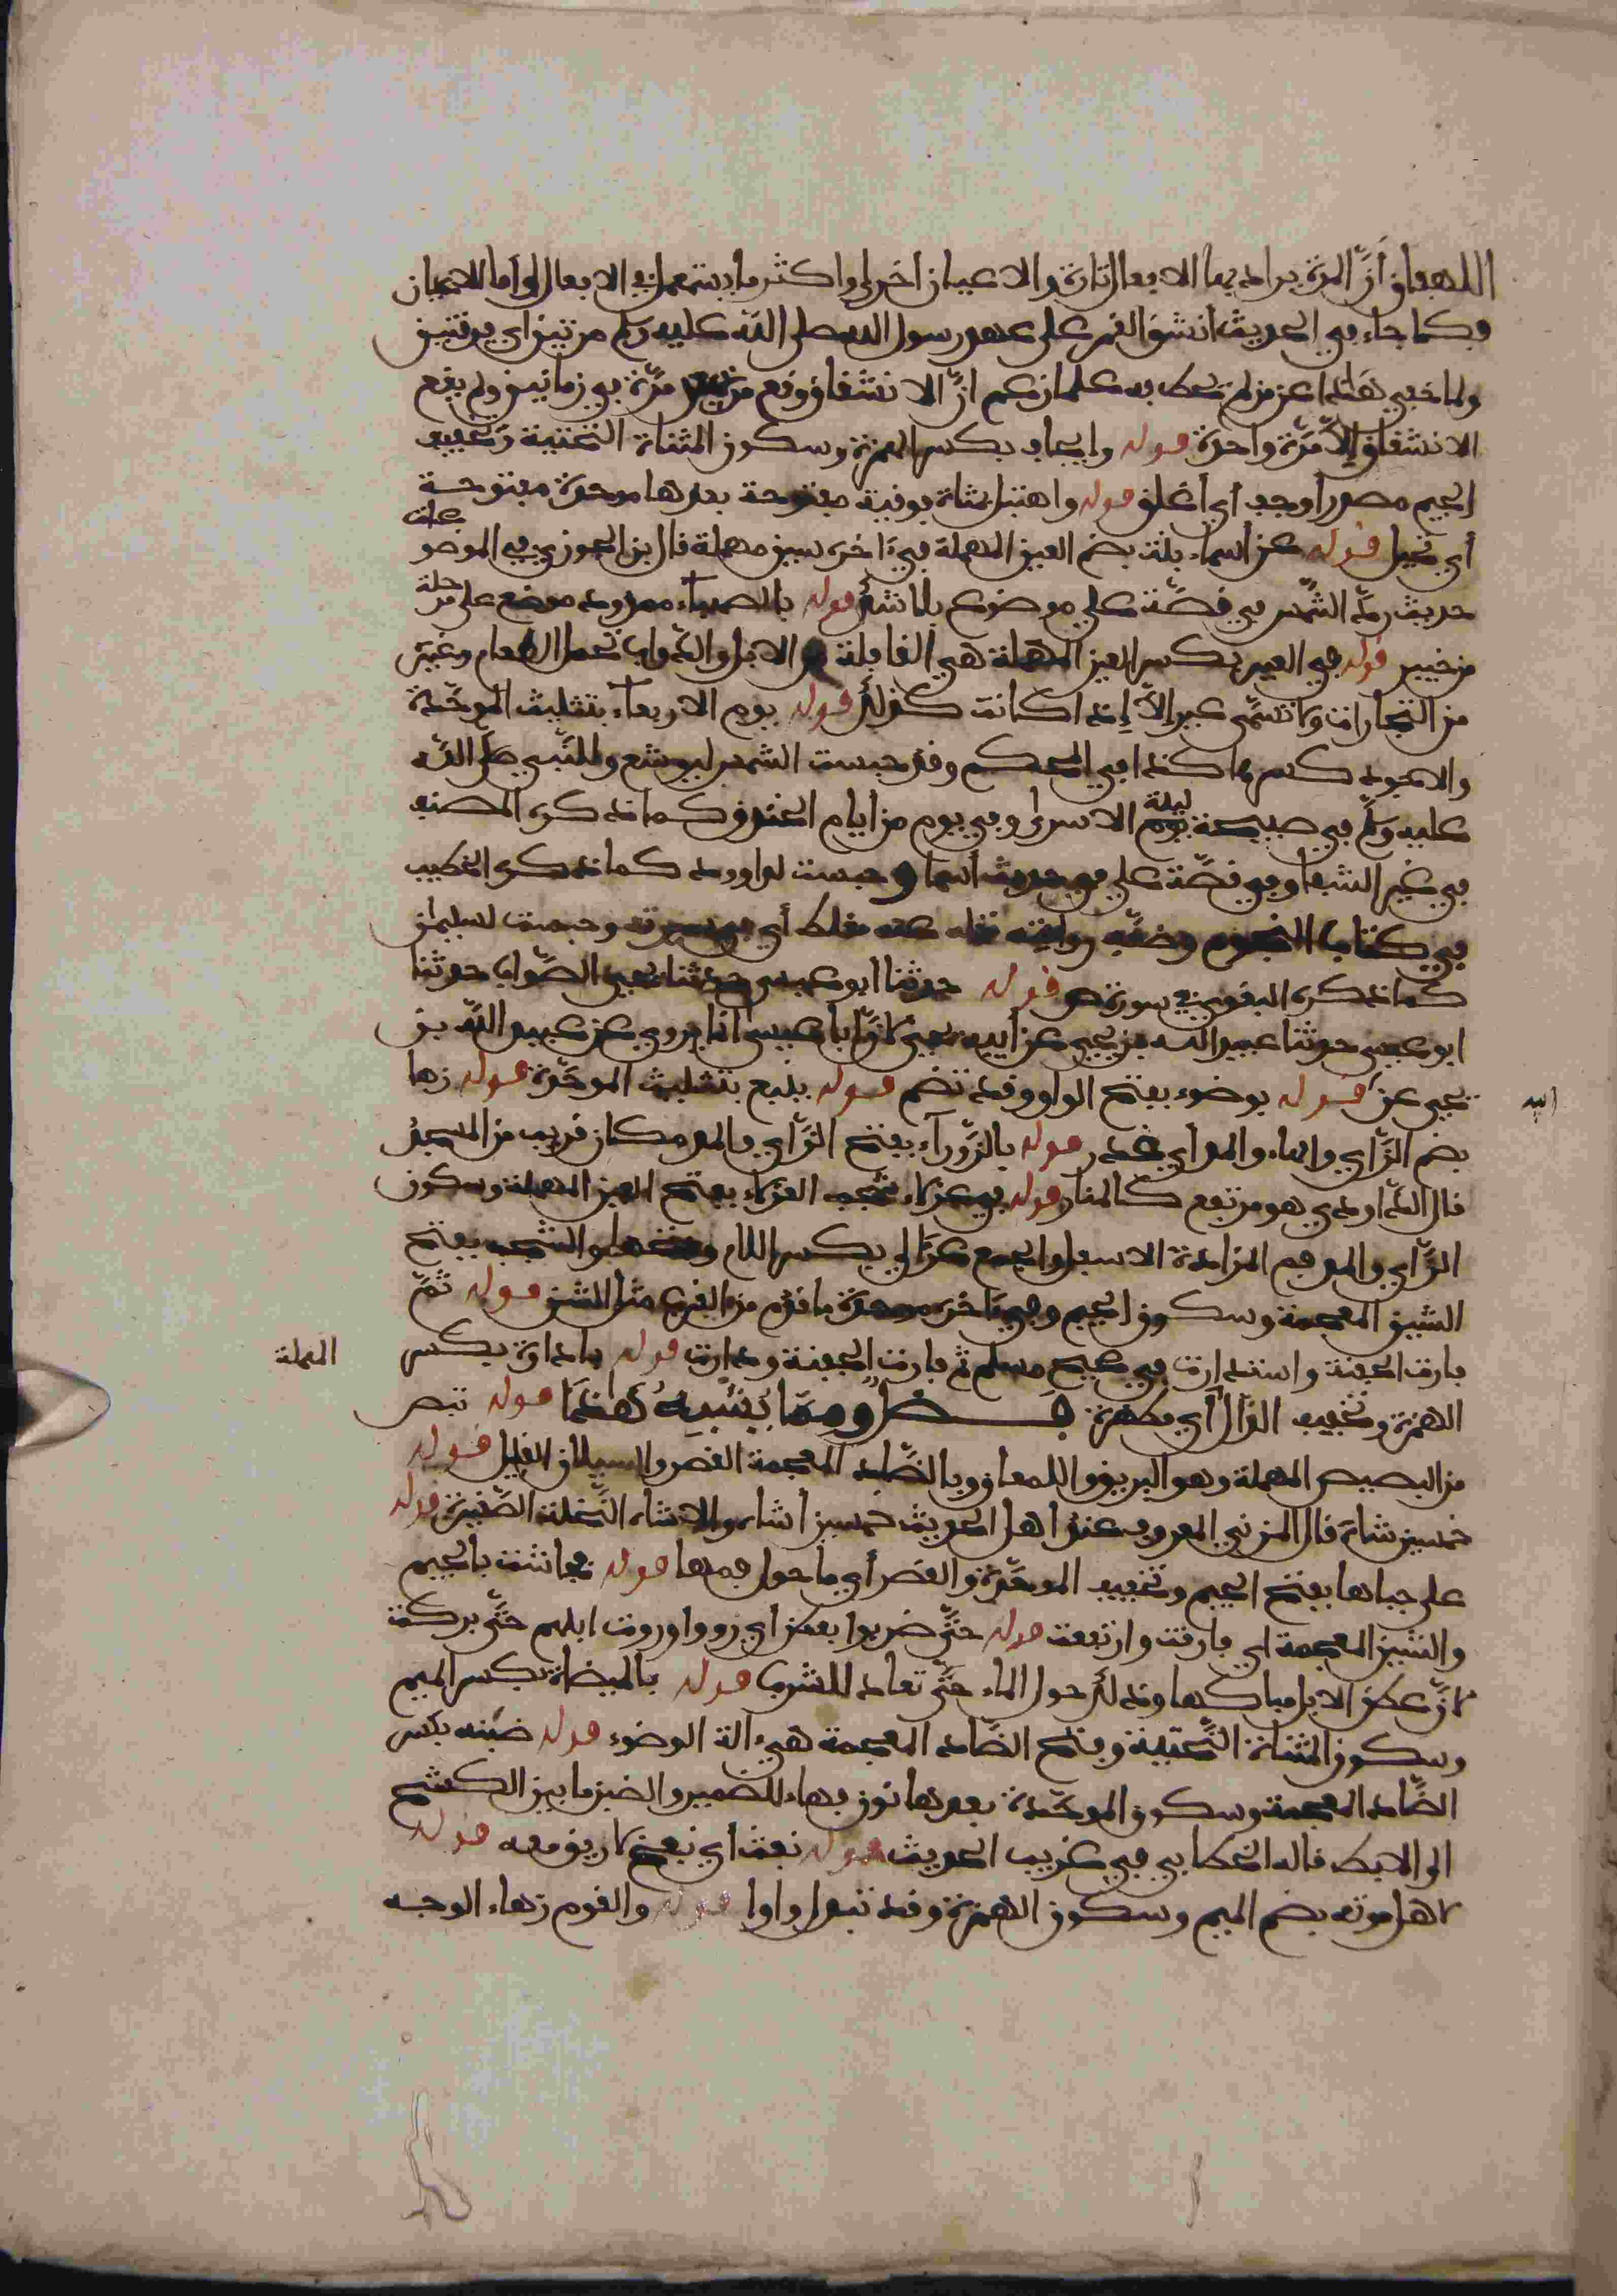 اللهفان أن المرة يراد بها الافعال تارة والاعيان اخرى واكثر ما يستعمل في الافعال واما الاعيان
فكما جاء في الحديث انشق القمر على عهد رسول الله صلى الله عليه وسلم مرتين اي فرقتين
ولما خفي هذا عن من لم يحط به علما زعم ان الانشقاق وقع مرة بعد مرة في زمانين ولم يقع
الانشقاق إلا مرة واحدة قوله وإيجاف بكسر الهمزة وسكون المثناة التحتية وتخفيف
الجيم مصدر أوجف أي أغلق قوله واهتبل بمثناة فوقية مفتوحة بعدها موحدة مفتوحة
أي تحيل قوله عن أسماء بنت بضم العين المهملة في ءاخره سين مهملة قال بن الجوزي في الموضوعات
حديث رد الشمس في قصة علي موضوع بلا شك قوله بالصهباء ممدود موضع على مرحلة
من خيبر قوله في العير بكسر العين المهملة هي القافلة من الابل والدواب تحمل الطعام وغيره
من التجارات ولا تسمى عيرا إلا إذا كانت كذلك قوله يوم الاربعاء بتثليث الموحدة
والاجود كسرها كذا في المحكم وقد حبست الشمس ليوشع وللنبي صلى الله
عليه وسلم في صبيحة ليلة الاسراى وفي يوم من أيام الخندق كما ذكره المصنف
في غير الشفا وفي قصة علي في حديث أسما وحبست لداوود كما ذكره الخطيب
في كتاب النجوم وضعف رواية نقله عنه مغلطاي في سيرته وحبست لسليمان
كما ذكره البغوي في سورة ص قوله حدثنا ابو عيسى حدثنا يحيى الصواب حدثنا
ابو عيسى حدثنا عبيد الله بن يحيى عن أبيه يحيى لان أبا عيسى انما يروي عن عبيد الله بن
يحيى عن أبيه قوله بوضوء بفتح الواو وقد تضم قوله ينبع بتثليث الموحدة قوله زها
بضم الزاي والهاء والمد أي قدر قوله بالزوراء بفتح الزاي والمد مكان قريب من المسجد
قال الداودي هو مرتفع كالمنار قوله في عزلاء شجب العزلاء بفتح العين المهملة وسكون
الزاي والمد فم المزادة الاسفل والجمع عزالي بكسر اللام وفتحها والشجب بفتح
الشين المعجمة وسكون الجيم وفي ءاخره موحدة ما قدم من القرب مثل الشن قوله ثم
فارت الجفنة واستدارت في صحيح مسلم ثم فارت الجفنة ودارت قوله باداوة بكسر
الهمزة وتخفيف الدال المهملة أي مطهرة فصل ومما يشبه هذا قوله تبص
من البصيص المهملة وهو البريق واللمعان وبالضاد المعجمة القصر والسيلان القليل قوله
خمسين شاة قال المزني المعروف عند اهل الحديث خمسين أشاء والاشاء النخلة الصغيرة قوله
على جباها بفتح الجيم وتخفيف الموحدة والقصر أي ما حول فمها قوله فجاشت بالجيم
والشين المعجمة اي فارقت وارتفعت قوله حتى ضربوا بعطن اي رووا ورويت ابلهم حتى بركت
لان عطن الابل مباركها وذلك حول الماء حتى تعاد للشرب قوله بالميضاة بكسر الميم
وسكون المثناة التحتية وفتح الضاد المعجمة هي ءالة الوضوء قوله ضبنه بكسر
الضاد المعجمة وسكون الموحدة بعدها نون فهاء للضمير والضبن ما بين الكشح
الى الابط قاله الخطابي في غريب الحديث قوله نفث أي نفخ لا ريق معه قوله
لاهل موتة بضم الميم وسكون الهمزة وقد تبدل واوا قوله والقوم زهاء الوجه